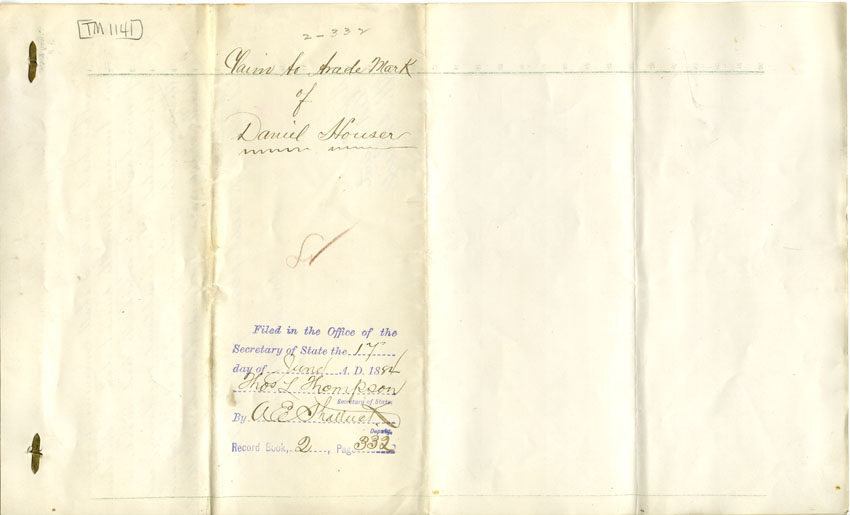 [TM 1141]
2-332
Claim to trade Mark
of
Daniel Houser
Filed in the Office of the
Secretary of State the 17
day of June A. D. 1884
Thos L Thompson
Secretary of State.
By A E Shattuck
Deputy.
Record Book, 2, Page 332